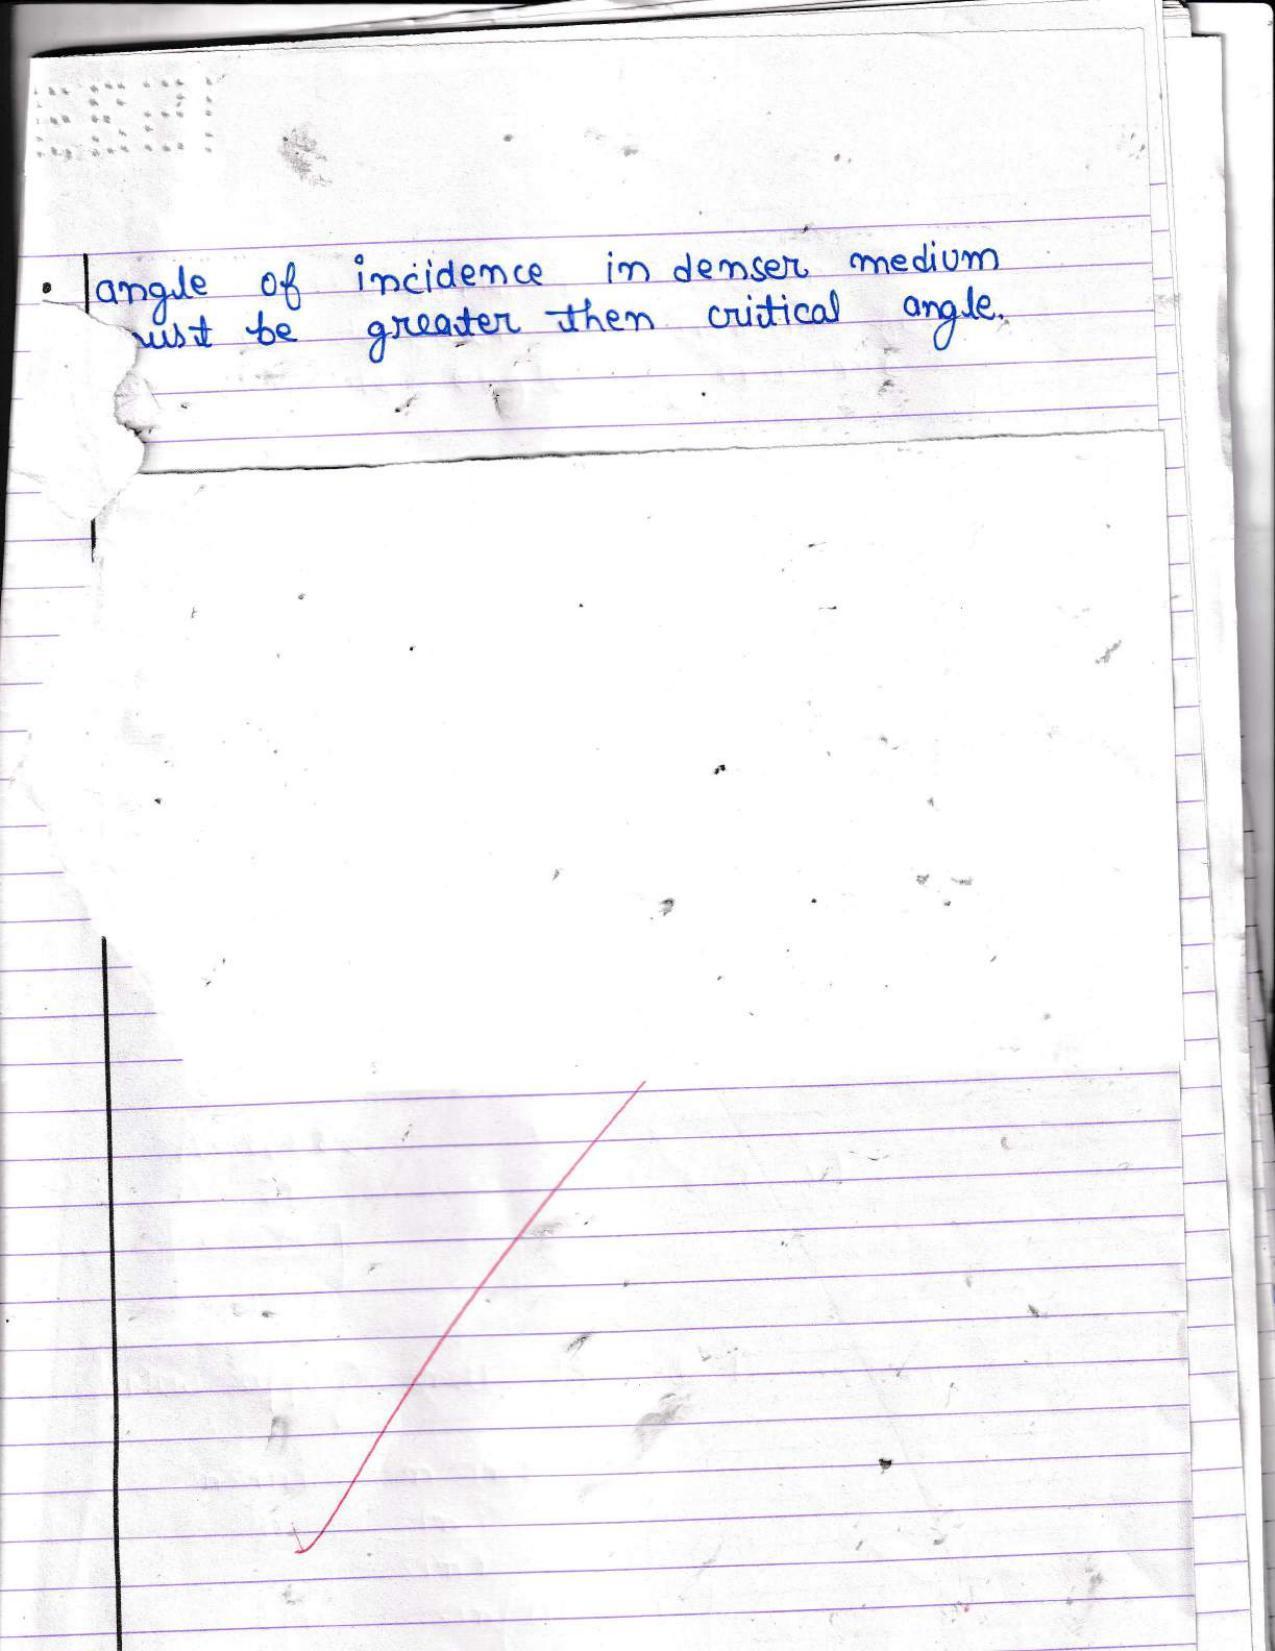 • angle of incidence in denser medium
ust be greater then critical angle.